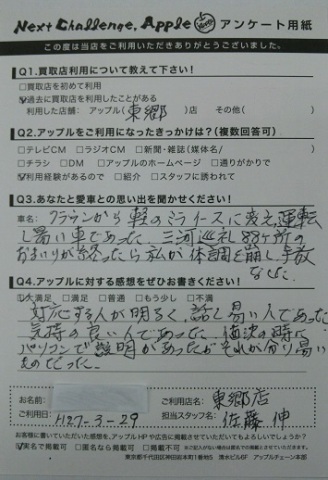 Next Challenge, Apple アンケート用紙
この度は当店をご利用いただきありがとうございました。
Q1.買取店利用について教えて下さい!
□買取店を初めて利用
☑過去に買取店を利用したことがある
利用した店舗: アップル(東郷)店 その他( )
Q2.アップルをご利用になったきっかけは?(複数回答可)
□テレビCM □ラジオCM □新聞・雑誌(媒体名/ )
□チラシ □DM □アップルのホームページ □通りがかりで
☑利用経験があるので □紹介 □スタッフに誘われて
Q3.あなたと愛車との思い出を聞かせください!
車名: クラウンから軽のミライースに変え、運転
し易い車であった。三河巡礼88ヶ所の
おまいりが終ったら私が体調を崩し手放
なした
Q4.アップルに対する感想をぜひお書きください!
☑大満足 □満足 □普通 □もう少し □不満
対応する人が明るく、話し易い人であった
気持の良い人であった、値決の時に
パソコンで説明があったがそれが分り易い
ものだった。
お名前:
ご利用店名: 東郷店
ご利用日: H27-3-29
担当スタッフ名: 佐藤伸
お書きいただいた感想を、アップルHPや広告に掲載させていただいてもよろしいでしょうか?
☑実名で掲載可 □匿名なら掲載可 □不可
東京都千代田区神田岩本町1番地5 清水ビル6F アップルチェーン本部